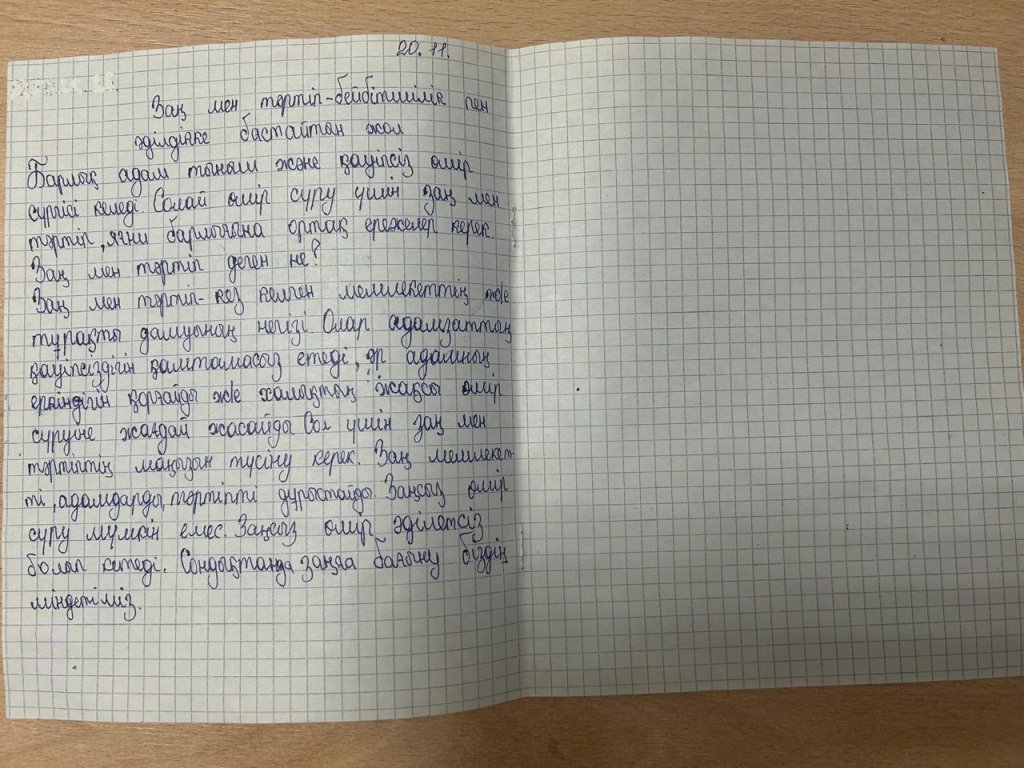 20. 11.
Заң мен тәртіп-бейбітшілік пен
әділдікке бастайтын жол
Барлық адам тыныш және қауіпсіз өмір
сүргісі келеді. Солай өмір сүру үшін заң мен
тәртіп, яғни барлығына ортақ ережелер керек.
Заң мен тәртіп деген не?
Заң мен тәртіп- кез келген мемлекеттің ж/е
тұрақты дамуының негізі. Олар адамзаттың
қауіпсіздігін қамтамасыз етеді, әр адамның
еркіндігін қорғайды ж/е халықтың жақсы өмір
сүруіне жағдай жасайды. Сол үшін заң мен
тәртіптің маңызын түсіну керек. Заң мемлекет-
ті, адамдарды, тәртіпті дұрыстайды. Заңсыз өмір
сүру мүмкін емес. Заңсыз өмір әділетсіз
болап кетеді. Сондықтанда заңға бағыну біздің
міндетіміз.